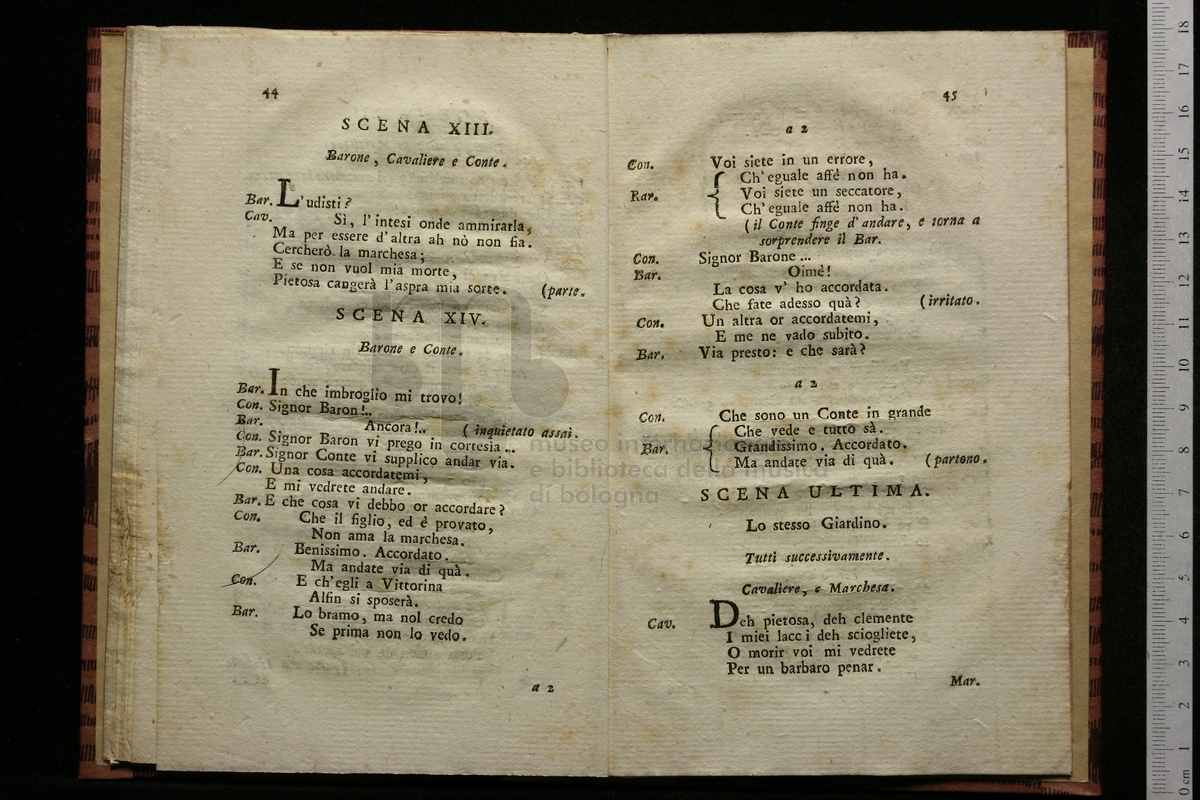 44
SCENA XIII.
Barone, Cavaliere e Conte.
Bar. L'udisti?
Cav. Sì, l'intesi onde ammirarla,
Ma per essere d'altra ah nò non fia.
Cercherò la marchesa;
E se non vuol mia morte,
Pietosa cangerà l'aspra mia sorte. (parte.
SCENA XIV.
Barone e Conte.
Bar. In che imbroglio mi trovo!
Con. Signor Baron!..
Bar. Ancora!.. (inquietato assai.
Con. Signor Baron vi prego in cortesìa...
Bar. Signor Conte vi supplico andar via.
Con. Una cosa accordatemi,
E mi vedrete andare.
Bar. E che cosa vi debbo or accordare?
Con. Che il figlio, ed è provato,
Non ama la marchesa.
Bar. Benissimo. Accordato.
Ma andate via di quà.
Con. E ch'egli a Vittorina
Alfin si sposerà.
Bar. Lo bramo, ma nol credo
Se prima non lo vedo.
a 2
45
a 2
Con. Voi siete in un errore,
Ch'eguale affè non ha.
Rar. Voi siete un seccatore,
Ch'eguale affè non ha.
(il Conte finge d'andare, e torna a
sorprendere il Bar.
Con. Signor Barone...
Bar. Oimè!
La cosa v' ho accordata.
Che fate adesso quà? (irritato.
Con. Un altra or accordatemi,
E me ne vado subito.
Bar. Via presto: e che sarà?
a 2
Con. Che sono un Conte in grande
Che vede e tutto sà.
Bar. Grandissimo. Accordato.
Ma andate via di quà. (partono.
SCENA ULTIMA.
Lo stesso Giardino.
Tutti successivamente.
Cavaliere, e Marchesa.
Cav. Deh pietosa, deh clemente
I miei lacci deh sciogliete,
O morir voi mi vedrete
Per un barbaro penar.
Mar.
museo internazionale
e biblioteca della musica
di bologna
0 cm 1 2 3 4 5 6 7 8 9 10 11 12 13 14 15 16 17 18